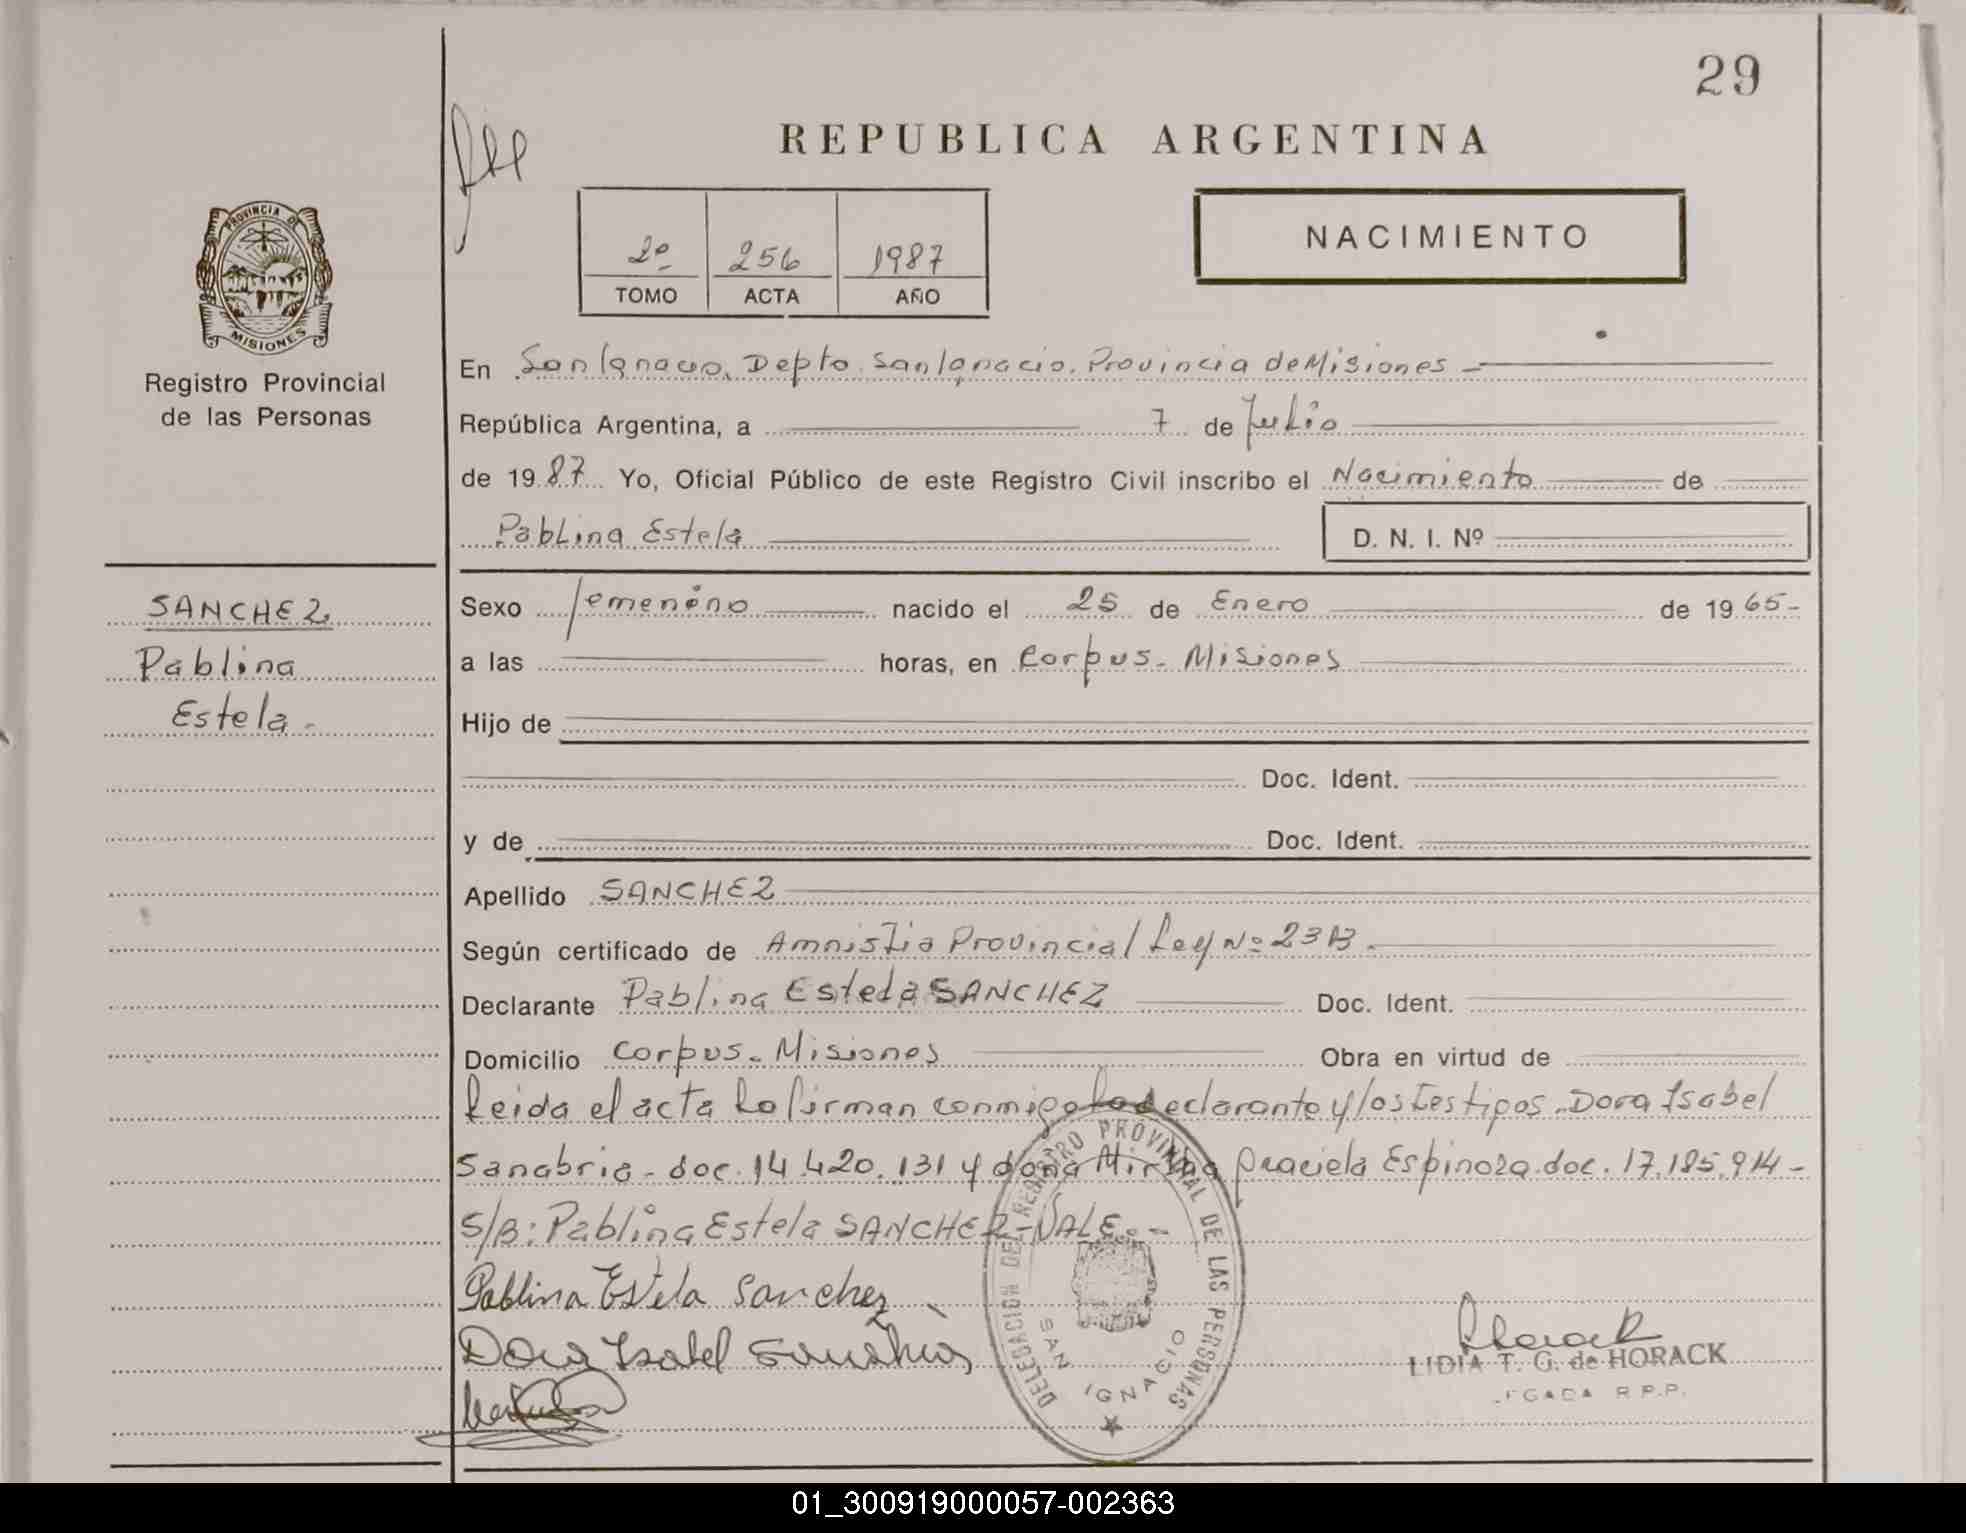 29
REPUBLICA ARGENTINA
2º 256 1987
TOMO ACTA AÑO
NACIMIENTO
PROVINCIA DE
MISIONES
Registro Provincial
de las Personas
SANCHEZ
Pablina
Estela.-
En San Ignacio, Depto. San Ignacio. Provincia de Misiones -
República Argentina, a 7 de Julio
de 1987 Yo, Oficial Público de este Registro Civil inscribo el Nacimiento de
Pablina Estela D. N. I. Nº
Sexo femenino nacido el 25 de Enero de 1965-
a las horas, en Corpus. Misiones
Hijo de
Doc. Ident.
y de Doc. Ident.
Apellido SANCHEZ
Según certificado de Amnistia Provincial Ley Nº
Declarante Pablina Estela SANCHEZ Doc. Ident.
Domicilio Corpus. Misiones Obra en virtud de
Leida el acta la firman conmigo la declarante y los testigos. Dora Isabel
Sanabria - doc. 14.420.131 y doña Mirtha Graciela Espinoza doc. 17.185.914-
S/B: Pablina Estela SANCHEZ-VALE.-
Pablina Estela Sanchez
Dora Isabel Sanabria
DELEGACION DEL REGISTRO PROVINCIAL DE LAS PERSONAS
SAN IGNACIO
LIDIA T. G. de HORACK
R.P.P.
01_300919000057-002363